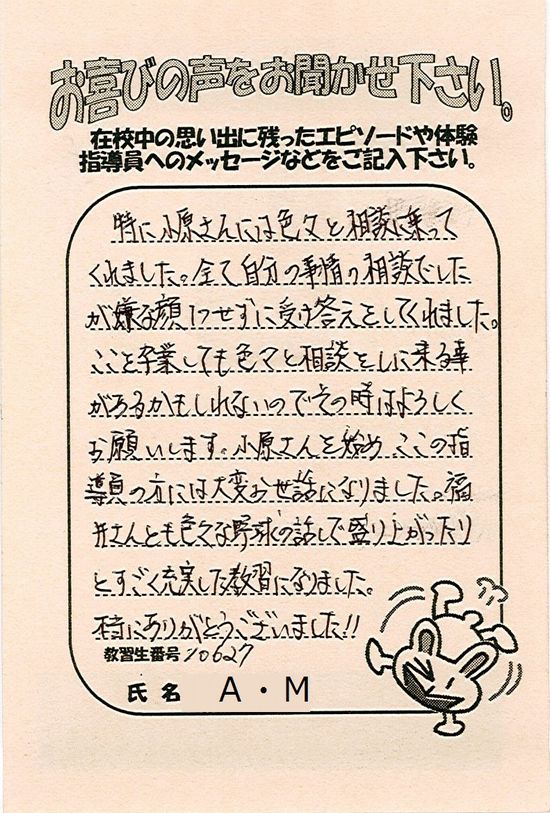 お喜びの声をお聞かせ下さい。
在校中の思い出に残ったエピソードや体験
指導員へのメッセージなどをご記入下さい。
特に小原さんには色々と相談に乗って
くれました。全て自分の事情の相談でした
が嫌な顔1つせずに受け答えをしてくれました。
ここを卒業しても色々と相談をしに来る事
があるかもしれないのでその時はよろしく
お願いします。小原さんを始め、ここの指
導員の方には大変お世話になりました。福
井さんとも色々な野球の話しで盛り上がったり
とすごく充実した教習になりました。
本当にありがとうございました!!
教習生番号 20627
氏名 A・M